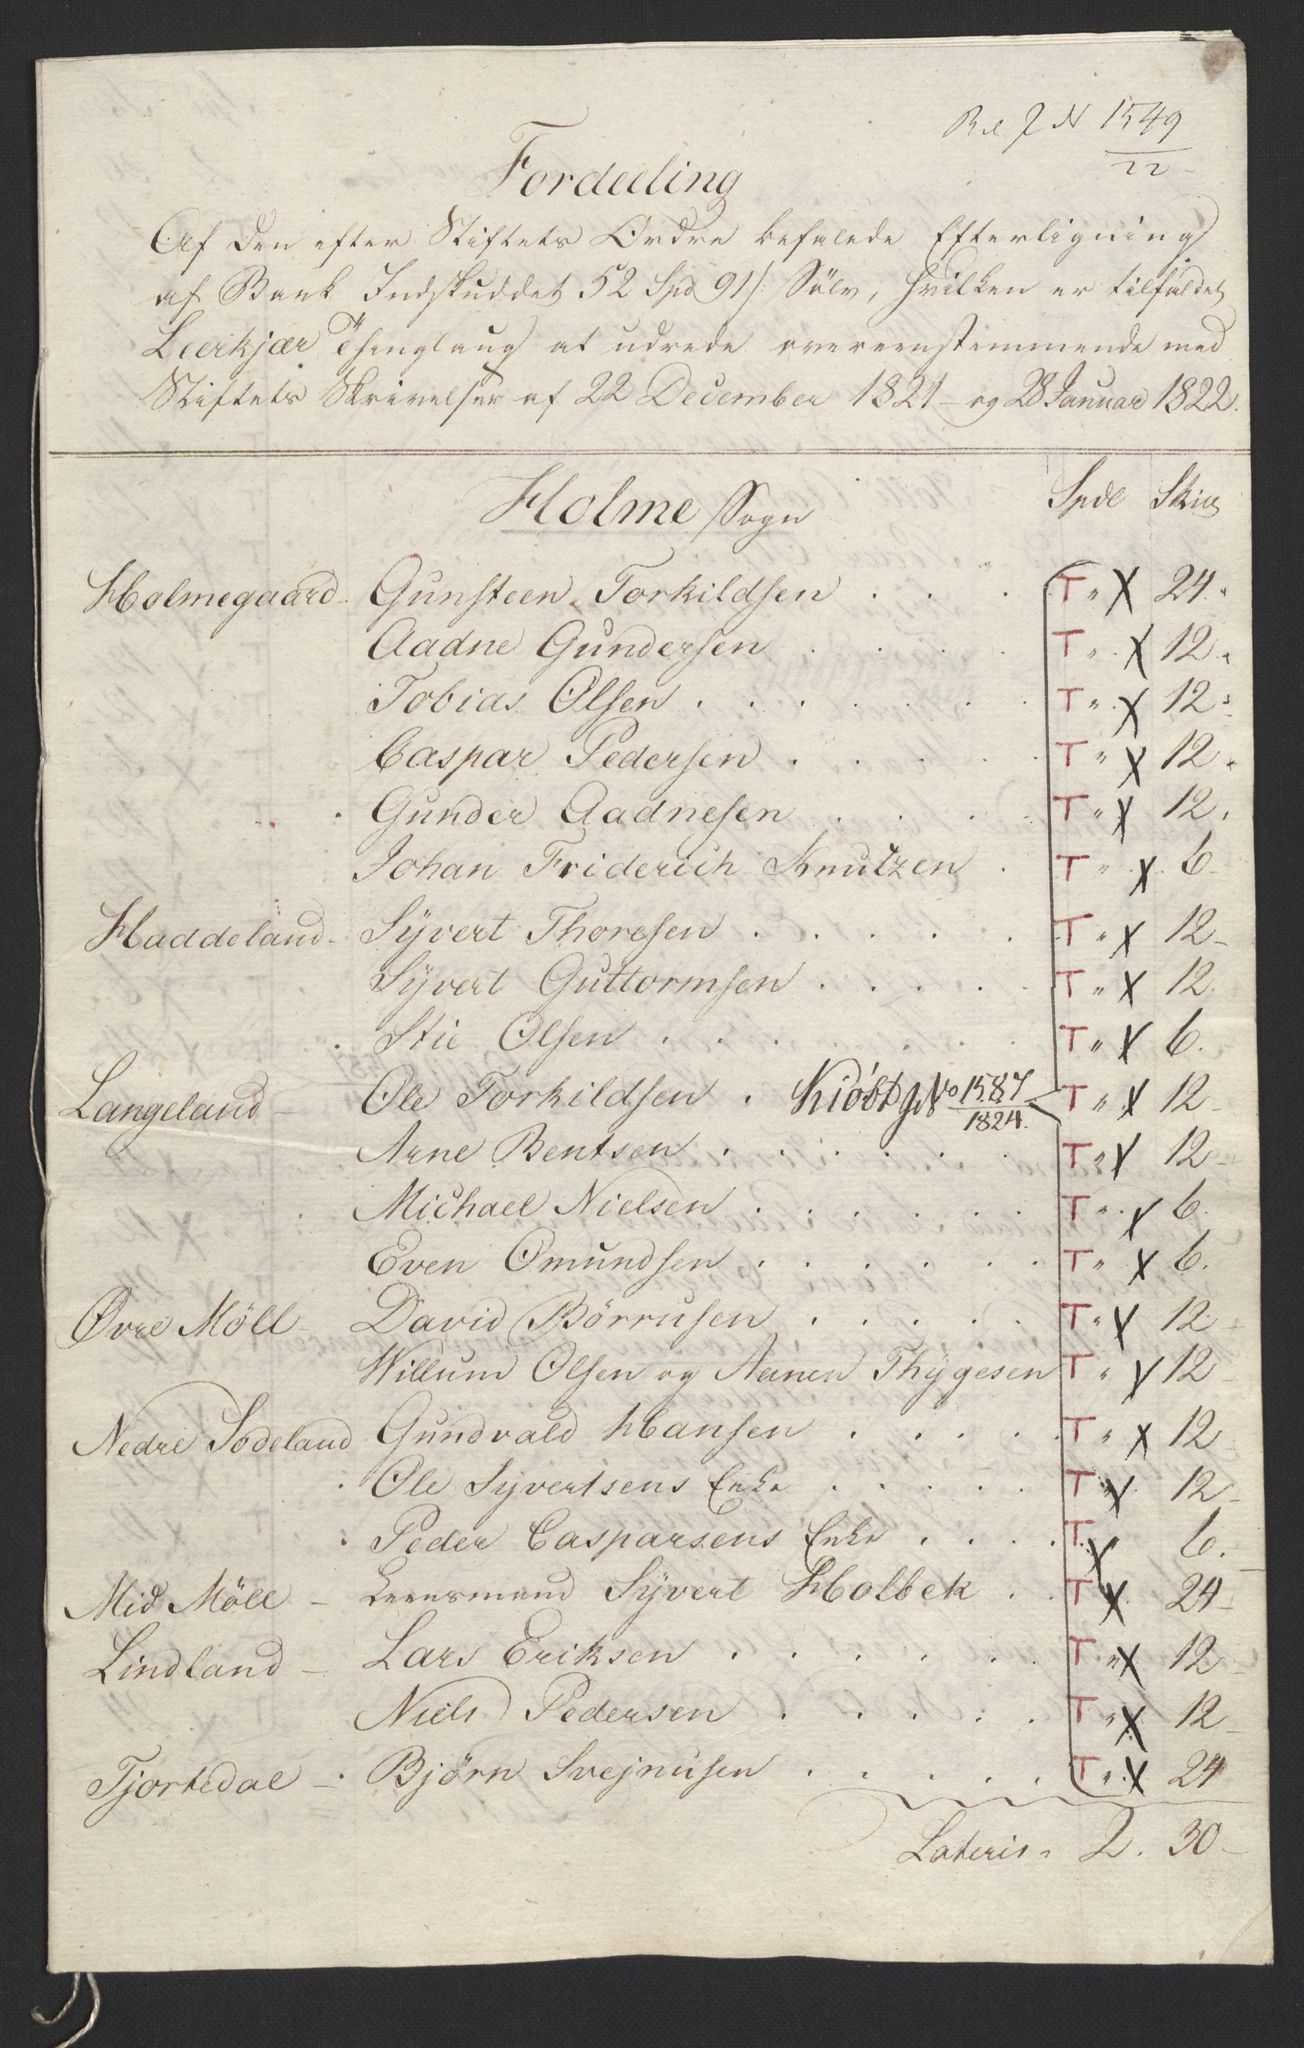 Rd J N 1549/22
Fordeeling
Af den efter Stiftets Ordre befalede Efterligning
af Bank Indskuddet 52 Spd 91 s: Sölv, hvilken er tilfaldet
Leerkjær Thinglaug at udrede overeenstemmende med
Stiftets Skrivelser af 22 December 1821 - og 28 Januar 1822.
Holme Sogn Spdl Skill
Holmegaard - Gunsteen Torkildsen . . . T " X 24.
Aadne Gundersen . . . . T " X 12.
Tobias Olsen . . . . . . . T " X 12.
Caspar Pedersen . . . . . T " X 12.
Gunder Aadnesen . . . . T " X 12.
Johan Friderich Knutzen . T " X 6
Haddeland - Syvert Thoresen . . . . . T " X 12 -
Syvert Guttormsen . . . . . T " X 12.
Stie Olsen . . . . . . . T " X 6.
Langeland - Ole Torkildsen . Kiöbt J No 1587/1824. T " X 12 -
Arne Bentsen . . . . . . T " X 12 -
Michael Nielsen . . . . . . T " X 6.
Even Omundsen . . . . . . T " X 6.
Øvre Möll - David Börrusen . . . . . T " X 12 -
Willum Olsen og Aanen Thygesen T " X 12
Nedre Sodeland Gundvald Hansen . . . . . T " X 12
Ole Syvertsens Enke . . . . . T " X 12 -
Peder Casparsens Enke . . . . T " X 6.
Mid Möll - Leensmand Syvert Holbek . . T " X 24 -
Lindland - Lars Eriksen . . . . . . T " X 12 -
Niels Pedersen . . . . . T " X 12 -
Tjortedal - Bjørn Svejnusen . . . . . T " X 24
Lateris " 2. 30 -